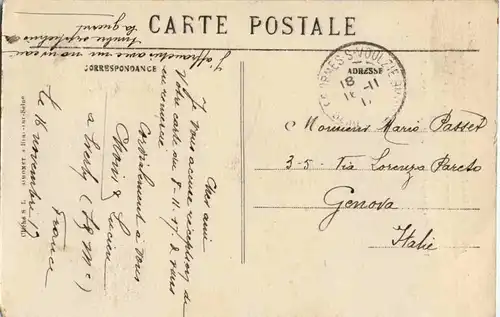 CARTE POSTALE
J'affranchis avec un nouveau
timbre orphelins
la guerre
CORRESPONDANCE
ADRESSE
ORMES-S-VOULZIE
18 -11
Cher ami
Je vous accuse réception de
votre carte du 8-11-17 & vous
en remercie
Cordialement à vous
Lucien
à (Sg Me)
France
Le 16 novembre 17
Monsieur Mario Passet
3-5- Via Lorenzo Pareto
Genova
Italie